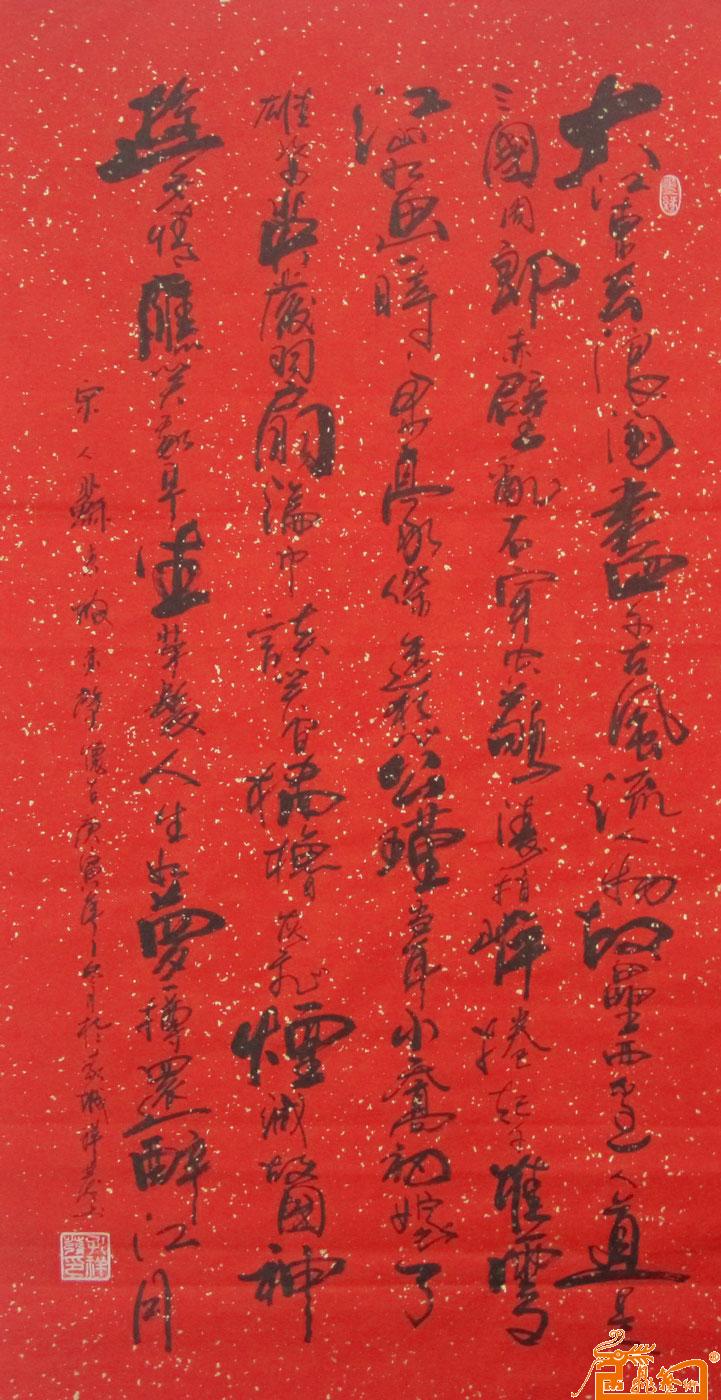 大江東去浪淘盡千古風流人物故壘西邊人道是
三國周郎赤壁亂石穿空驚濤拍岸捲起千堆雪
江山如畫一時多少豪傑遙想公瑾當年小喬初嫁了
雄姿英發羽扇綸巾談笑間檣櫓灰飛煙滅故國神
遊多情應笑我早生華髮人生如夢一樽還酹江月
宋人蘇去赤壁懷古庚寅年月於